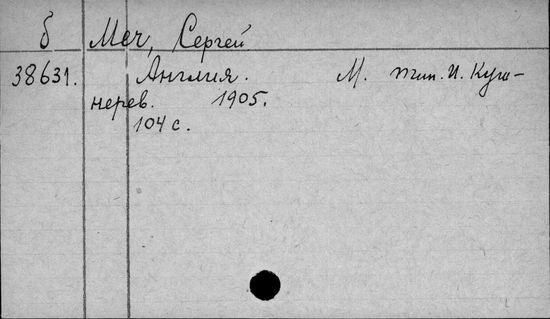 б Меч, Сергей
38631. Англия. М. тип. И. Куш-
нерев. 1905.
104 с.